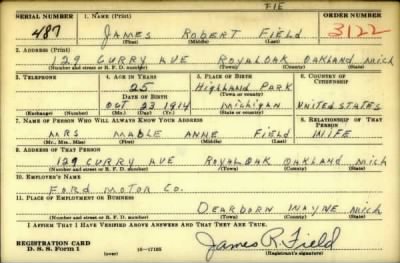 FIE
SERIAL NUMBER 1. NAME (Print) ORDER NUMBER
487 JAMES ROBERT FIELD 3122
(First) (Middle) (Last)
2. ADDRESS (Print)
129 CURRY AVE ROYAL OAK OAKLAND MICH
(Number and street or R. F. D. number) (Town) (County) (State)
3. TELEPHONE 4. AGE IN YEARS 5. PLACE OF BIRTH 6. COUNTRY OF CITIZENSHIP
25 Highland PARK
DATE OF BIRTH (Town or county)
OCT 23 1914 Michigan United States
(Exchange) (Number) (Mo.) (Day) (Yr.) (State or country)
7. NAME OF PERSON WHO WILL ALWAYS KNOW YOUR ADDRESS 8. RELATIONSHIP OF THAT PERSON
MRS MABLE ANNE FIELD WIFE
(Mr., Mrs., Miss) (First) (Middle) (Last)
9. ADDRESS OF THAT PERSON
129 CURRY AVE ROYAL OAK OAKLAND Mich
(Number and street or R. F. D. number) (Town) (County) (State)
10. EMPLOYER'S NAME
FORD MOTOR CO.
11. PLACE OF EMPLOYMENT OR BUSINESS
DEARBORN WAYNE Mich
(Number and street or R. F. D. number) (Town) (County) (State)
I AFFIRM THAT I HAVE VERIFIED ABOVE ANSWERS AND THAT THEY ARE TRUE.
REGISTRATION CARD
D. S. S. FORM 1 (over) 16-17105 James R. Field
(Registrant's signature)